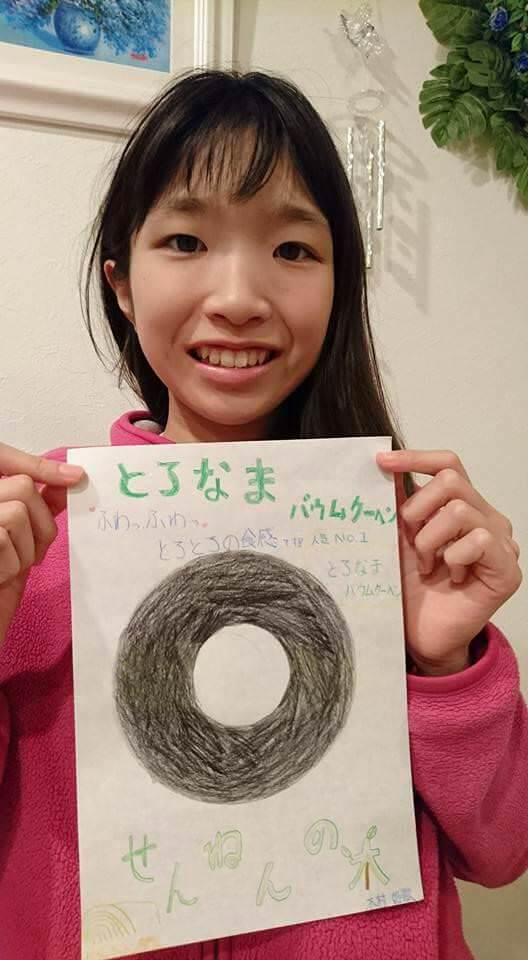 とろなま
バウムクーヘン
ふわっふわっ
とろとろの食感で 人気 NO.1
とろなま
バウムクーヘン
せんねんの木
木村